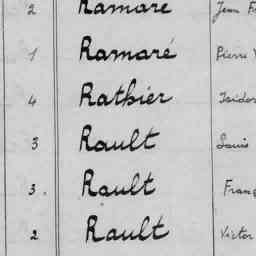 2 Ramaré Jean
1 Ramaré Pierre
4 Rathier Isidor
3 Rault Louis
3. Rault Franç
2 Rault Victor